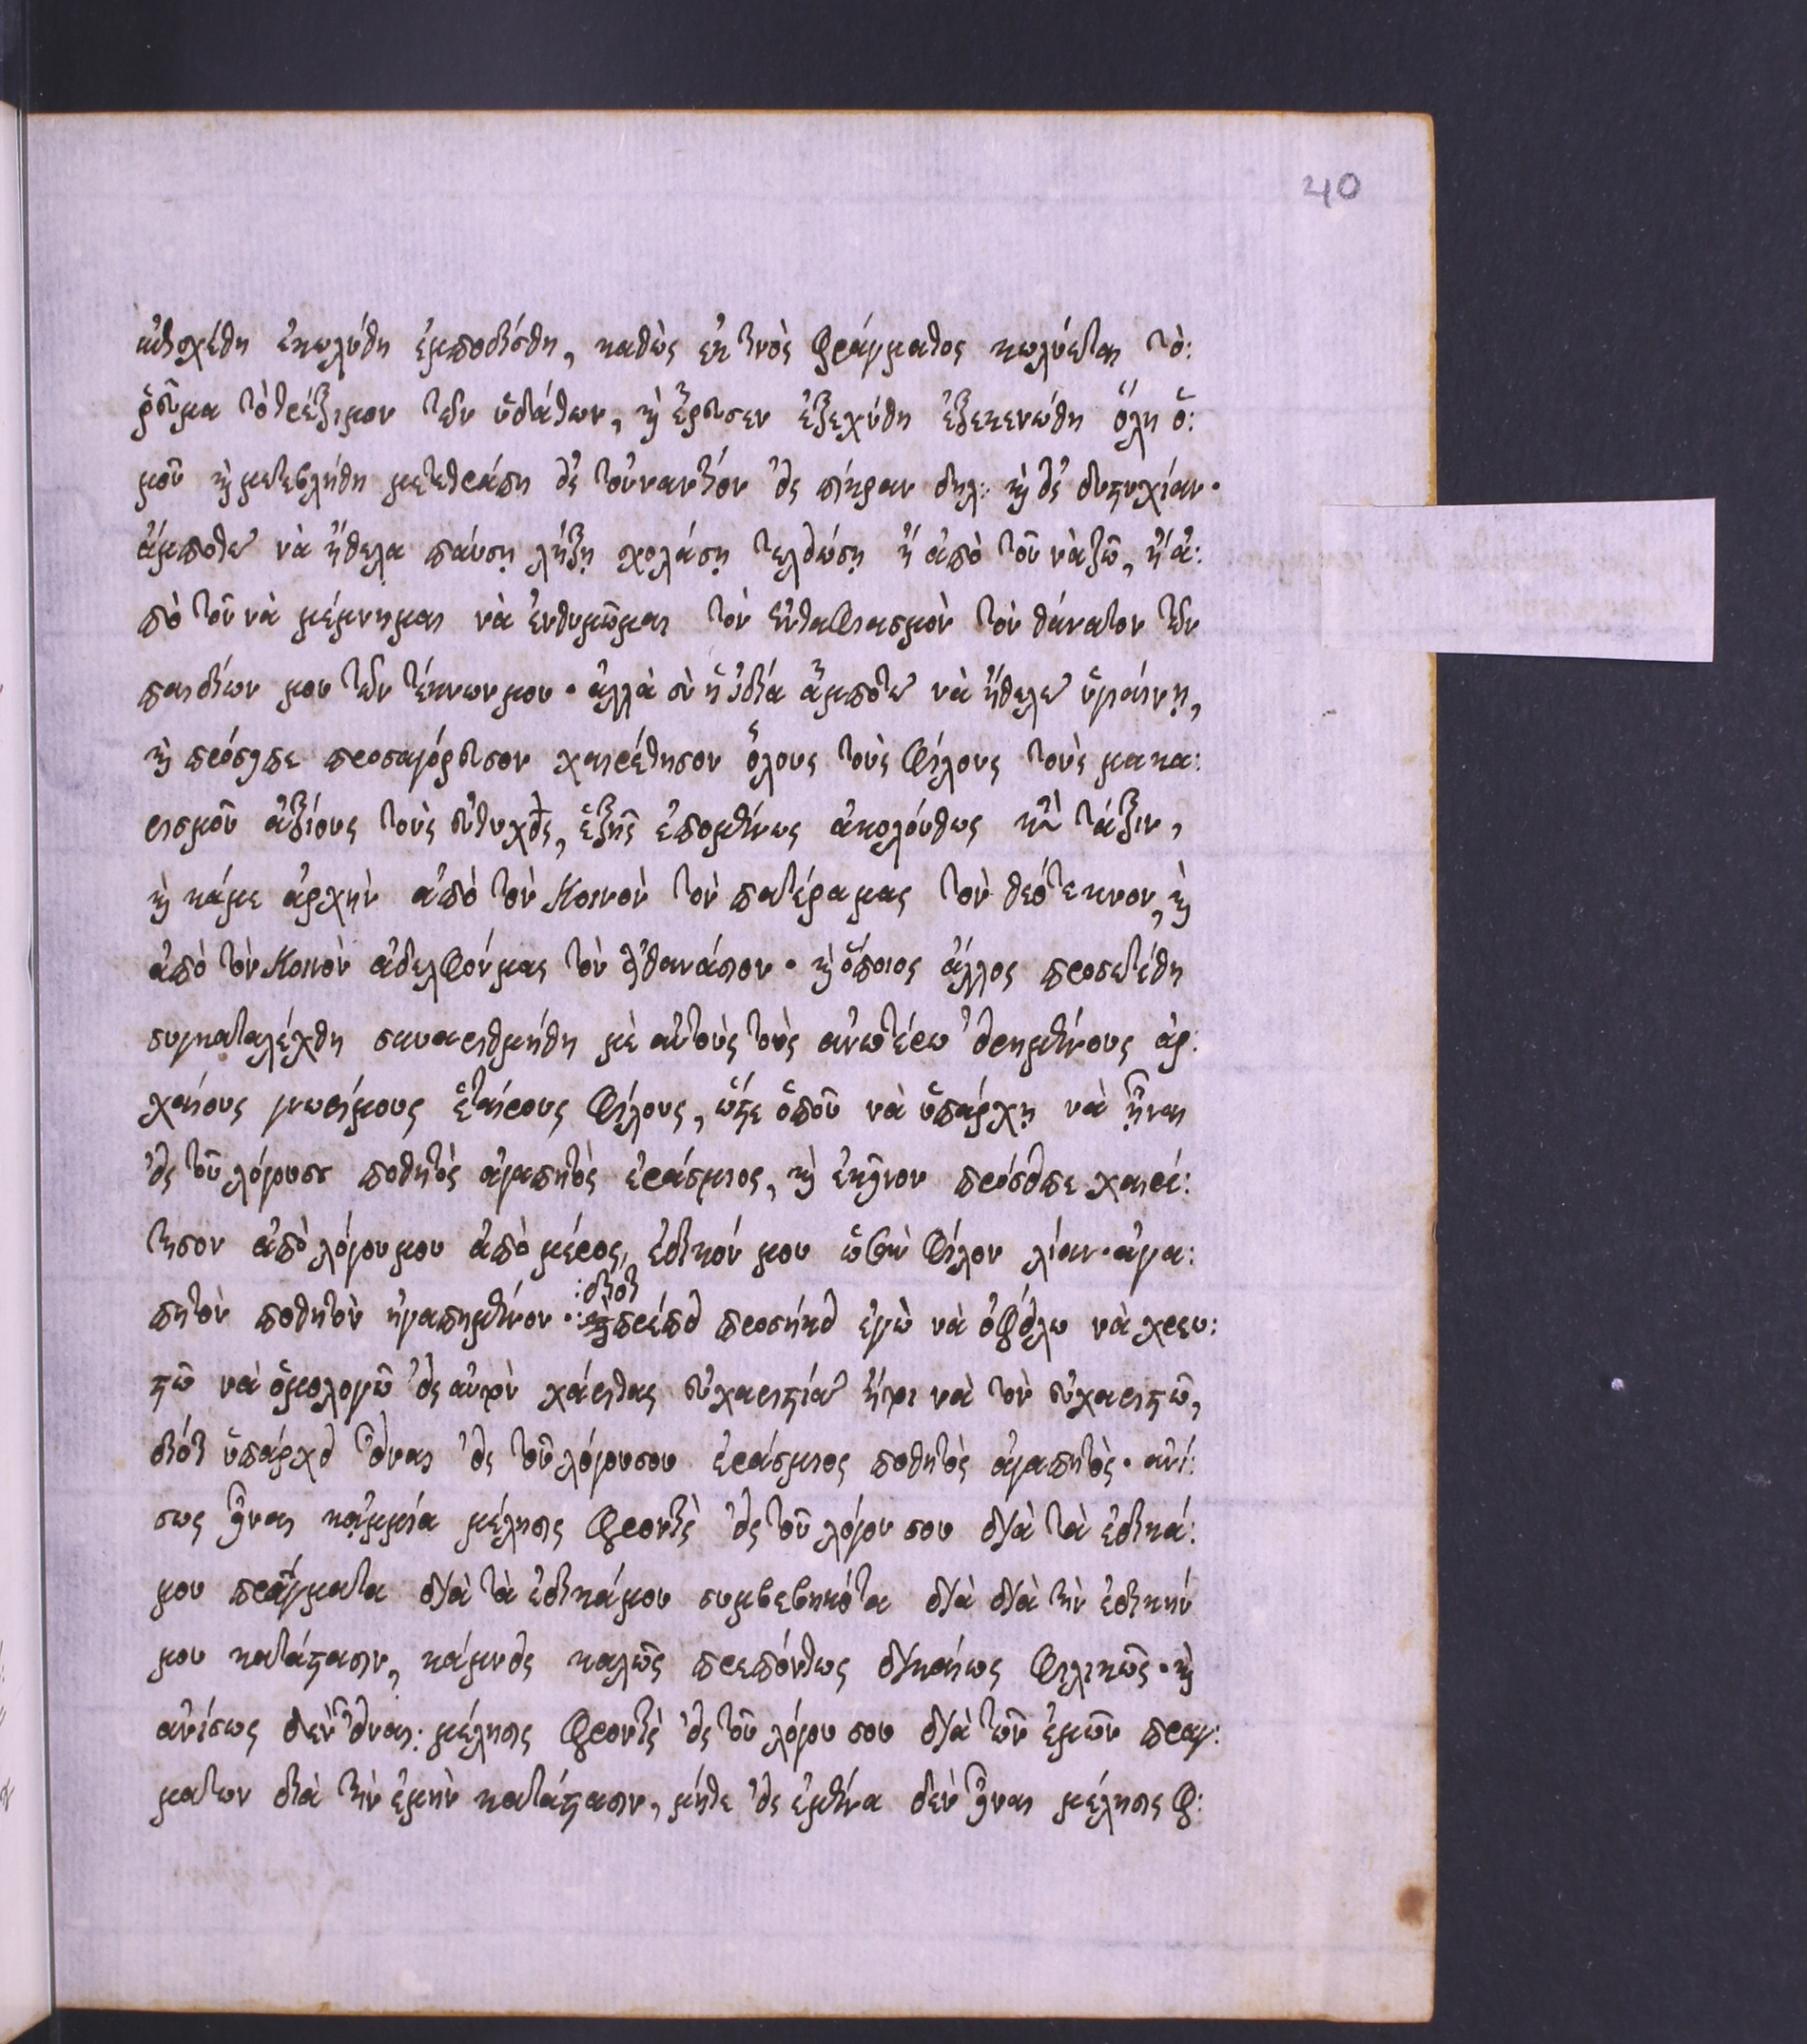 40
ἀντισχέθη ἐκωλύθη ἐμποδίσθη, καθὼς ἐκ τινὸς φράγματος κωλύεται τὸ:
ῥεῦμα τὸ τρέξιμον τῶν ὑδάτων, καὶ ἔρευσεν ἐξεχύθη ἐξεκενώθη ὅλη ὁ:
μοῦ καὶ μετεβλήθη μετετράπη εἰς τοὐναντίον εἰς πίκραν δηλ: καὶ εἰς δυστυχίαν·
ἄμποτε νὰ ἤθελα παύσῃ λήξῃ σχολάσῃ τελειώσῃ ἢ ἀπὸ τοῦ νὰ ζῶ, ἢ ἀ:
πὸ τοῦ νὰ μέμνημαι νὰ ἐνθυμῶμαι τὸν ἐνταφιασμὸν τὸν θάνατον τῶν
παιδίων μου τῶν τέκνων μου· ἀλλὰ σὺ ἡ ἰδία ἄμποτε νὰ ἤθελε ὑγιαίνῃ,
καὶ πρόσειπε προσαγόρευσον χαιρέτησον ὅλους τοὺς φίλους τοὺς μακα:
ρισμοῦ ἀξίους τοὺς εὐτυχεῖς, ἑξῆς ἑπομένως ἀκολούθως κατὰ τάξιν,
καὶ κάμε ἀρχὴν ἀπὸ τὸν κοινὸν τὸν πατέρα μας τὸν θεότεκνον, καὶ
ἀπὸ τὸν κοινὸν ἀδελφόν μας τὸν ἀθανάσιον· καὶ ὅποιος ἄλλος προσετέθη
συγκαταλέχθη συναριθμήθη μὲ αὐτοὺς τοὺς ἀνωτέρω εἰρημένους ἀρ:
χαίους γνωρίμους ἑταίρους φίλους, ὥστε ὁποῦ νὰ ὑπάρχῃ νὰ ᾖναι
εἰς τοῦ λόγου σου ποθητὸς ἀγαπητὸς ἐράσμιος, καὶ ἐκεῖνον πρόσειπε χαιρέ:
τησον ἀπὸ λόγου μου ἀπὸ μέρος ἐδικόν μου ὡσὰν φίλον λίαν ἀγα:
πητὸν ποθητὸν ἠγαπημένον· :διότι καὶ πρέπει προσήκει ἐγὼ νὰ ὀφείλω νὰ χρεω:
στῶ νὰ ὁμολογῶ εἰς αὐτὸν χάριτας εὐχαριστίας ἤγουν νὰ τὸν εὐχαριστῶ,
διότι ὑπάρχει εἶναι εἰς τοῦ λόγου σου ἐράσμιος ποθητὸς ἀγαπητὸς· ἀνί:
σως εἶναι καμμία μέλησις φροντὶς εἰς τοῦ λόγου σου διὰ τὰ ἐδικά:
μου πράγματα διὰ τὰ ἐδικά μου συμβεβηκότα διὰ διὰ τὴν ἐδικήν
μου κατάστασιν, κάμνεις καλῶς πρεπόντως δικαίως φιλικῶς· καὶ
ἀνίσως δὲν εἶναι μέλησις φροντὶς εἰς τοῦ λόγου σου διὰ τῶν ἐμῶν πραγ:
μάτων διὰ τὴν ἐμὴν κατάστασιν, μήτε εἰς ἐμένα δὲν εἶναι μέλησις φ: